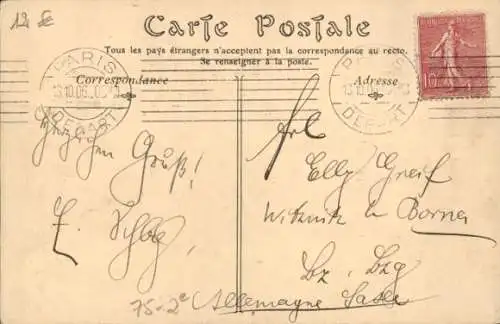 12
Carte Postale
Tous les pays étrangers n'acceptent pas la correspondance au recto.
Se renseigner à la poste.
Correspondance
Adresse
PARIS
DEPART
PARIS
DEPART
10
Herzlichen
Gruß!
E.
Frl.
Elly Greif
Witznitz b Borna
Bz. Lzg
Allemagne
75-2e